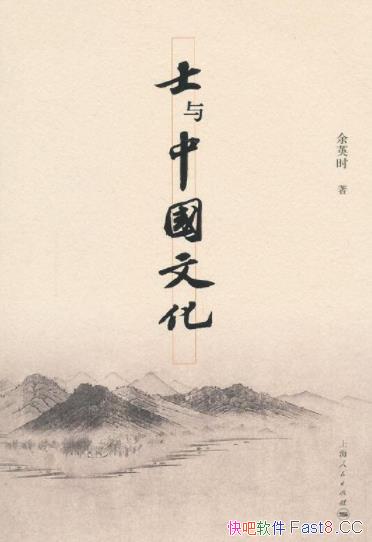 士与中國文化
余英时 著
上海人民出版社
快吧软件 Fast8.CC